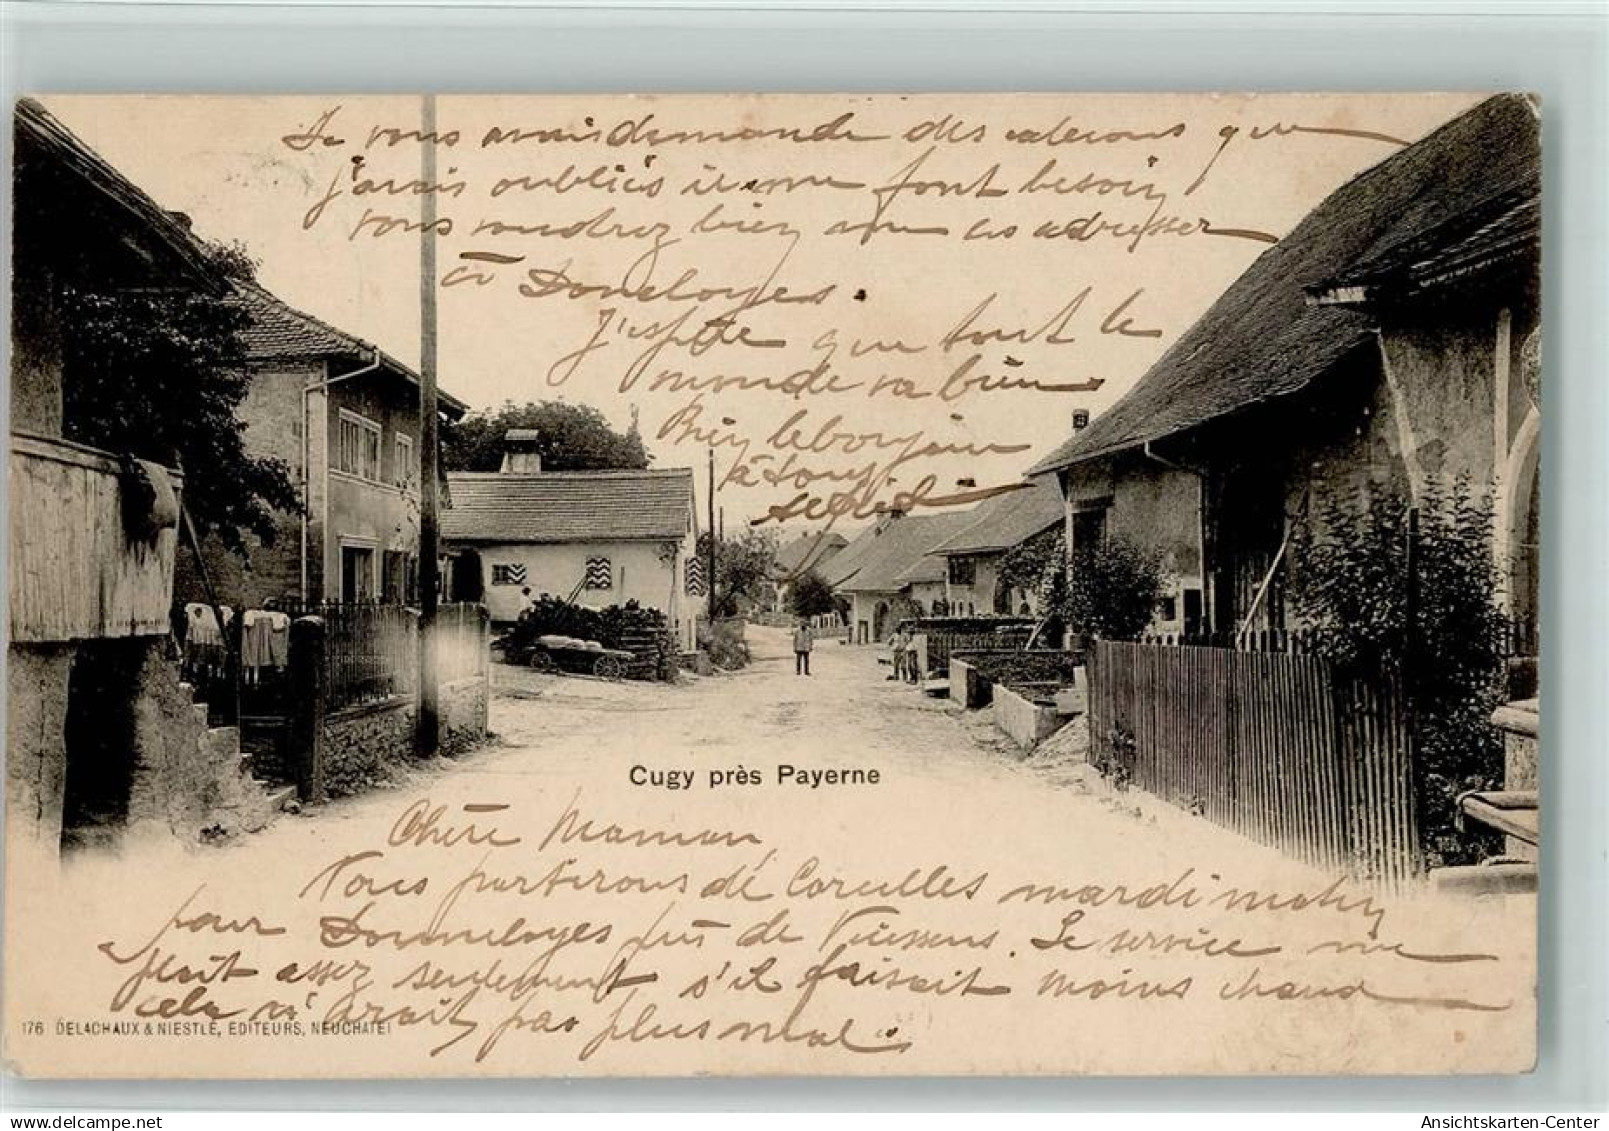 Je vous avais demandé des caleçons que
j'avais oubliés ils me font besoin
vous voudrez bien me les adresser
à Donneloyes.
J'espère que tout le
monde va bien
Bien le bonjour
à tous
Cugy près Payerne
Chère Maman,
Nous partirons de Corcelles mardi matin
pour Donneloyes près de Vuissens. Le service me
plait assez seulement s'il faisait moins chaud
cela n'irait pas plus mal.
176 DELACHAUX & NIESTLÉ, EDITEURS, NEUCHATEL
oldthing.com
Ansichtskarten-Center